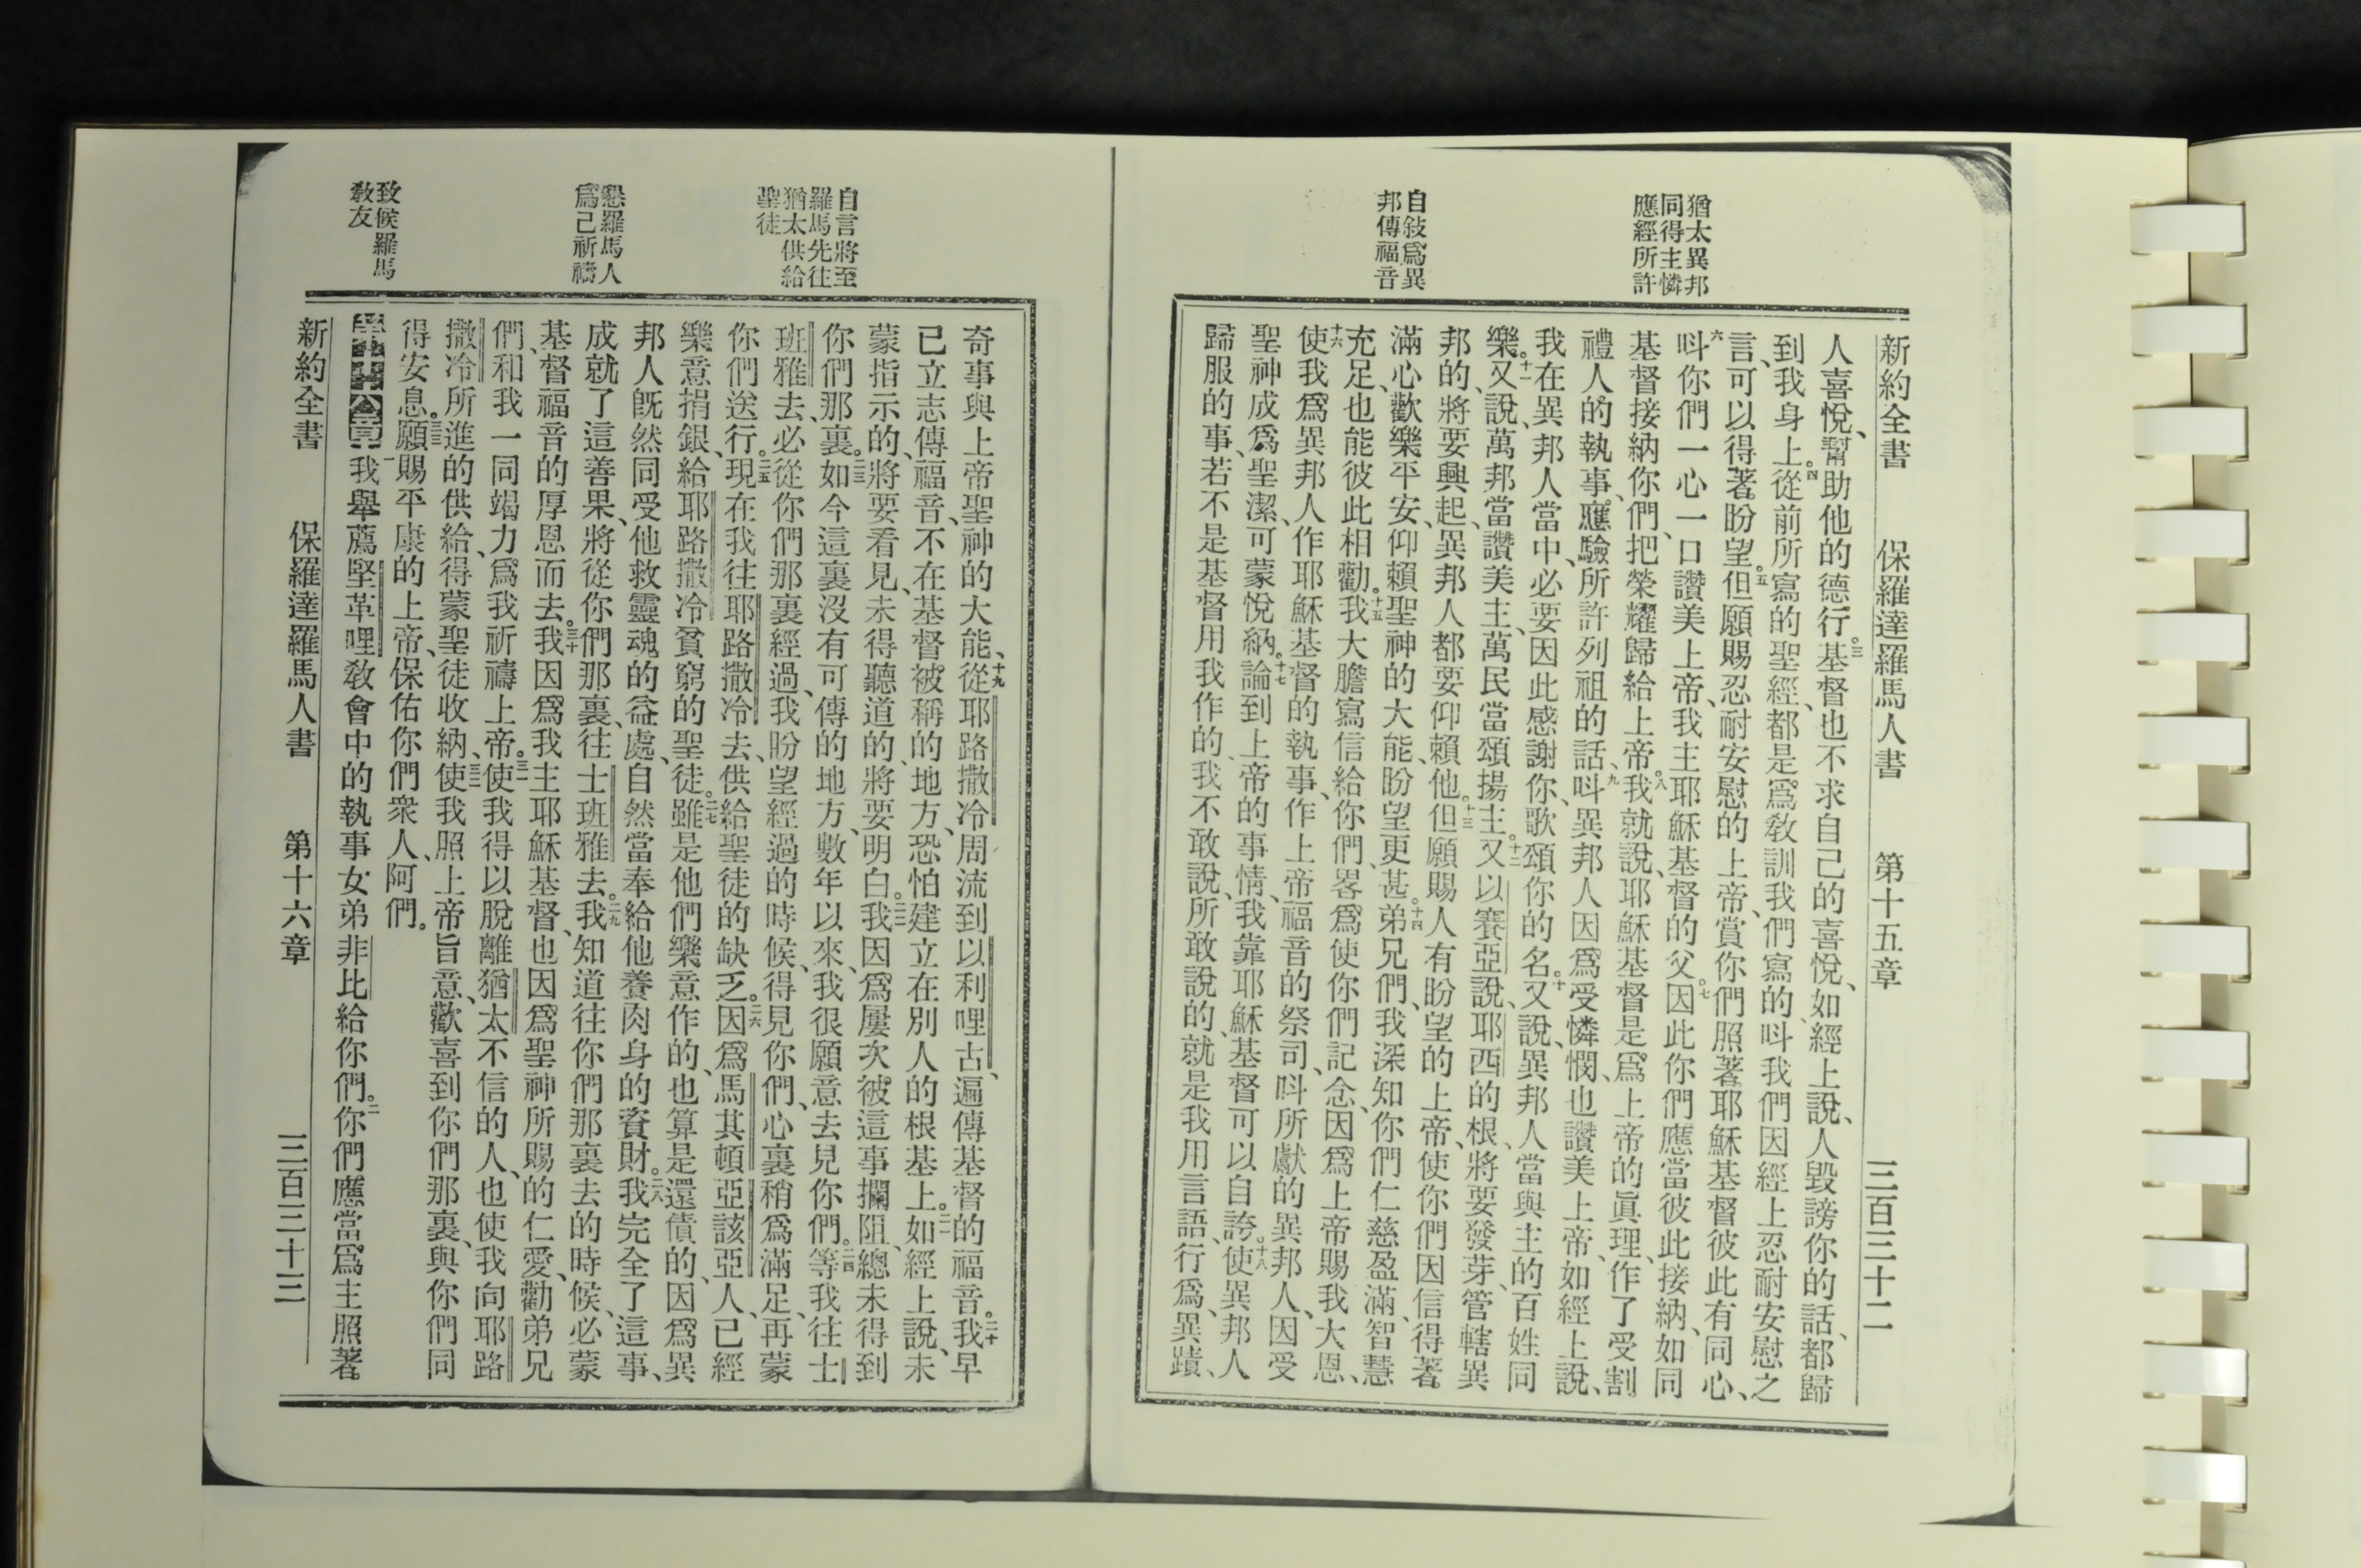 猶太異邦
同得主憐
應經所許
自敍爲異
邦傳福音
新約全書 保羅達羅馬人書 第十五章 三百三十二
人喜悅、幫助他的德行。三基督也不求自己的喜悅、如經上說、人毀謗你的話、都歸
到我身上。四從前所寫的聖經、都是爲敎訓我們寫的、呌我們因經上忍耐安慰之
言、可以得著盼望。五但願賜忍耐安慰的上帝、賞你們照著耶穌基督彼此有同心、
六呌你們一心一口讚美上帝、我主耶穌基督的父。七因此你們應當彼此接納、如同
基督接納你們、把榮耀歸給上帝。八我就說、耶穌基督是爲上帝的眞理、作了受割
禮人的執事、應驗所許列祖的話、九呌異邦人因爲受憐憫、也讚美上帝、如經上說、
我在異邦人當中、必要因此感謝你、歌頌你的名。十又說、異邦人當與主的百姓同
樂。十一又說、萬邦當讚美主、萬民當頌揚主。十二又以賽亞說、耶西的根、將要發芽、管轄異
邦的、將要興起、異邦人都要仰賴他。十三但願賜人有盼望的上帝、使你們因信得著
滿心歡樂平安、仰賴聖神的大能、盼望更甚。十四弟兄們、我深知你們仁慈盈滿、智慧
充足、也能彼此相勸。十五我大膽寫信給你們、畧爲使你們記念、因爲上帝賜我大恩、
十六使我爲異邦人作耶穌基督的執事、作上帝福音的祭司、呌所獻的異邦人、因受
聖神成爲聖潔、可蒙悅納。十七論到上帝的事情、我靠耶穌基督可以自誇。十八使異邦人
歸服的事、若不是基督用我作的、我不敢說、所敢說的、就是我用言語、行爲、異蹟、
自言將至
羅馬先往
猶太供給
聖徒
懇羅馬人
爲己祈禱
致候羅馬
敎友
奇事與上帝聖神的大能、十九從耶路撒冷周流到以利哩古、遍傳基督的福音。二十我早
已立志傳福音、不在基督被稱的地方、恐怕建立在別人的根基上。二一如經上說、未
蒙指示的、將要看見、未得聽道的、將要明白。二二我因爲屢次被這事攔阻、總未得到
你們那裏。二三如今這裏沒有可傳的地方、數年以來、我很願意去見你們。二四等我往士
班雅去、必從你們那裏經過、我盼望經過的時候、得見你們、心裏稍爲滿足、再蒙
你們送行。二五現在我往耶路撒冷去、供給聖徒的缺乏。二六因爲馬其頓亞該亞人、已經
樂意捐銀、給耶路撒冷貧窮的聖徒。二七雖是他們樂意作的、也算是還債的、因爲異
邦人旣然同受他救靈魂的益處、自然當奉給他養肉身的資財。二八我完全了這事、
成就了這善果、將從你們那裏、往士班雅去。二九我知道往你們那裏去的時候、必蒙
基督福音的厚恩而去。三十我因爲我主耶穌基督、也因爲聖神所賜的仁愛、勸弟兄
們、和我一同竭力爲我祈禱上帝。三一使我得以脫離猶太不信的人、也使我向耶路
撒冷所進的供給、得蒙聖徒收納、三二使我照上帝旨意、歡喜到你們那裏、與你們同
得安息。三三願賜平康的上帝、保佑你們衆人、阿們。
第十六章 一我舉薦堅革哩敎會中的執事女弟非比給你們。二你們應當爲主照著
新約全書 保羅達羅馬人書 第十六章 三百三十三